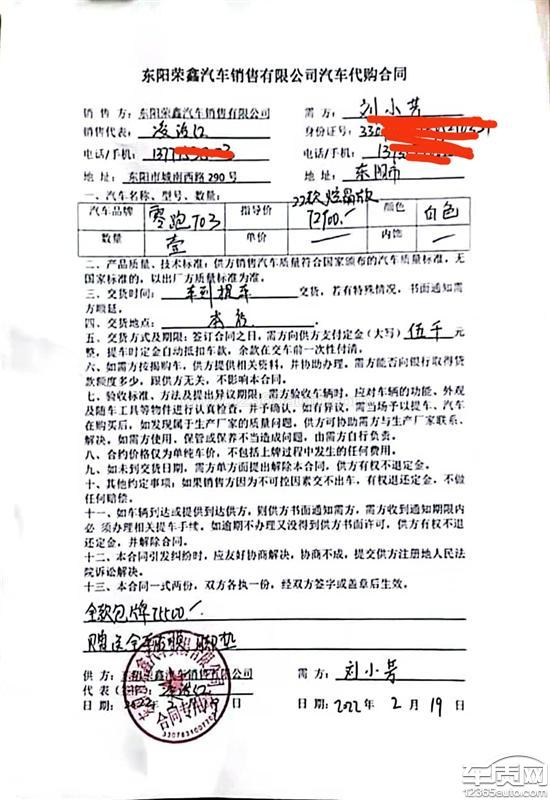 东阳荣鑫汽车销售有限公司汽车代购合同
销售方：东阳荣鑫汽车销售有限公司 需方：刘小芳
销售代表： 身份证号：330
电话/手机：1377 电话/手机：137
地址：东阳市城南西路290号 地址：东阳市
一、汽车名称、型号、数量：
汽车品牌 零跑T03 指导价 72900.- 颜色 白色
数量 壹 单价 — 内饰 —
二、产品质量、技术标准：供方销售汽车质量符合国家颁布的汽车质量标准，无
国家标准的，以出厂方质量标准为准。
三、交货时间：车到提车 交货，若有特殊情况，书面通知需
方顺延。
四、交货地点：本
五、交货方式及期限：签订合同之日，需方向供方支付定金（大写）伍仟元
整，提车时定金自动抵扣车款，余款在交车前一次性付清。
六、如需方按揭购车，供方提供相关资料，并协助办理。需方能否向银行取得贷
款额度多少，跟供方无关，不影响本合同。
七、验收标准、方法及提出异议期限：需方验收车辆时，应对车辆的功能、外观
及随车工具等物件进行认真检查，并予确认，如有异议，需当场予以提车、汽车
在购买后，如发现属于生产厂家的质量问题，供方可协助需方与生产厂家联系、
解决。如需方使用、保管或保养不当造成问题，由需方自行负责。
八、合约价格仅为单纯车价，不包括上牌过程中发生的任何费用。
九、如未到交货日期，需方单方面提出解除本合同，供方有权不退定金。
十、其他约定事项：如果销售方因为不可抗因素交不出车，有权退还定金，不做
任何赔偿。
十一、如车辆到达或提供到达供方，则供方书面通知需方，需方收到通知期限内
必 须办理相关提车手续。如逾期不办理又没得到供方书面许可，供方有权不退
还定金，并解除合同。
十二、本合同引发纠纷时，应友好协商解决，协商不成，提交供方注册地人民法
院诉讼解决。
十三、本合同一式两份，双方各执一份，经双方签字或盖章后生效。
全款包牌75500.-
赠送全车 膜 脚垫
供方：东阳荣鑫汽车销售有限公司 需方：刘小芳
代表（签）：
日期：2022年2月19 日期：2022年2月19日
合同专用章
车质网
12365auto.com